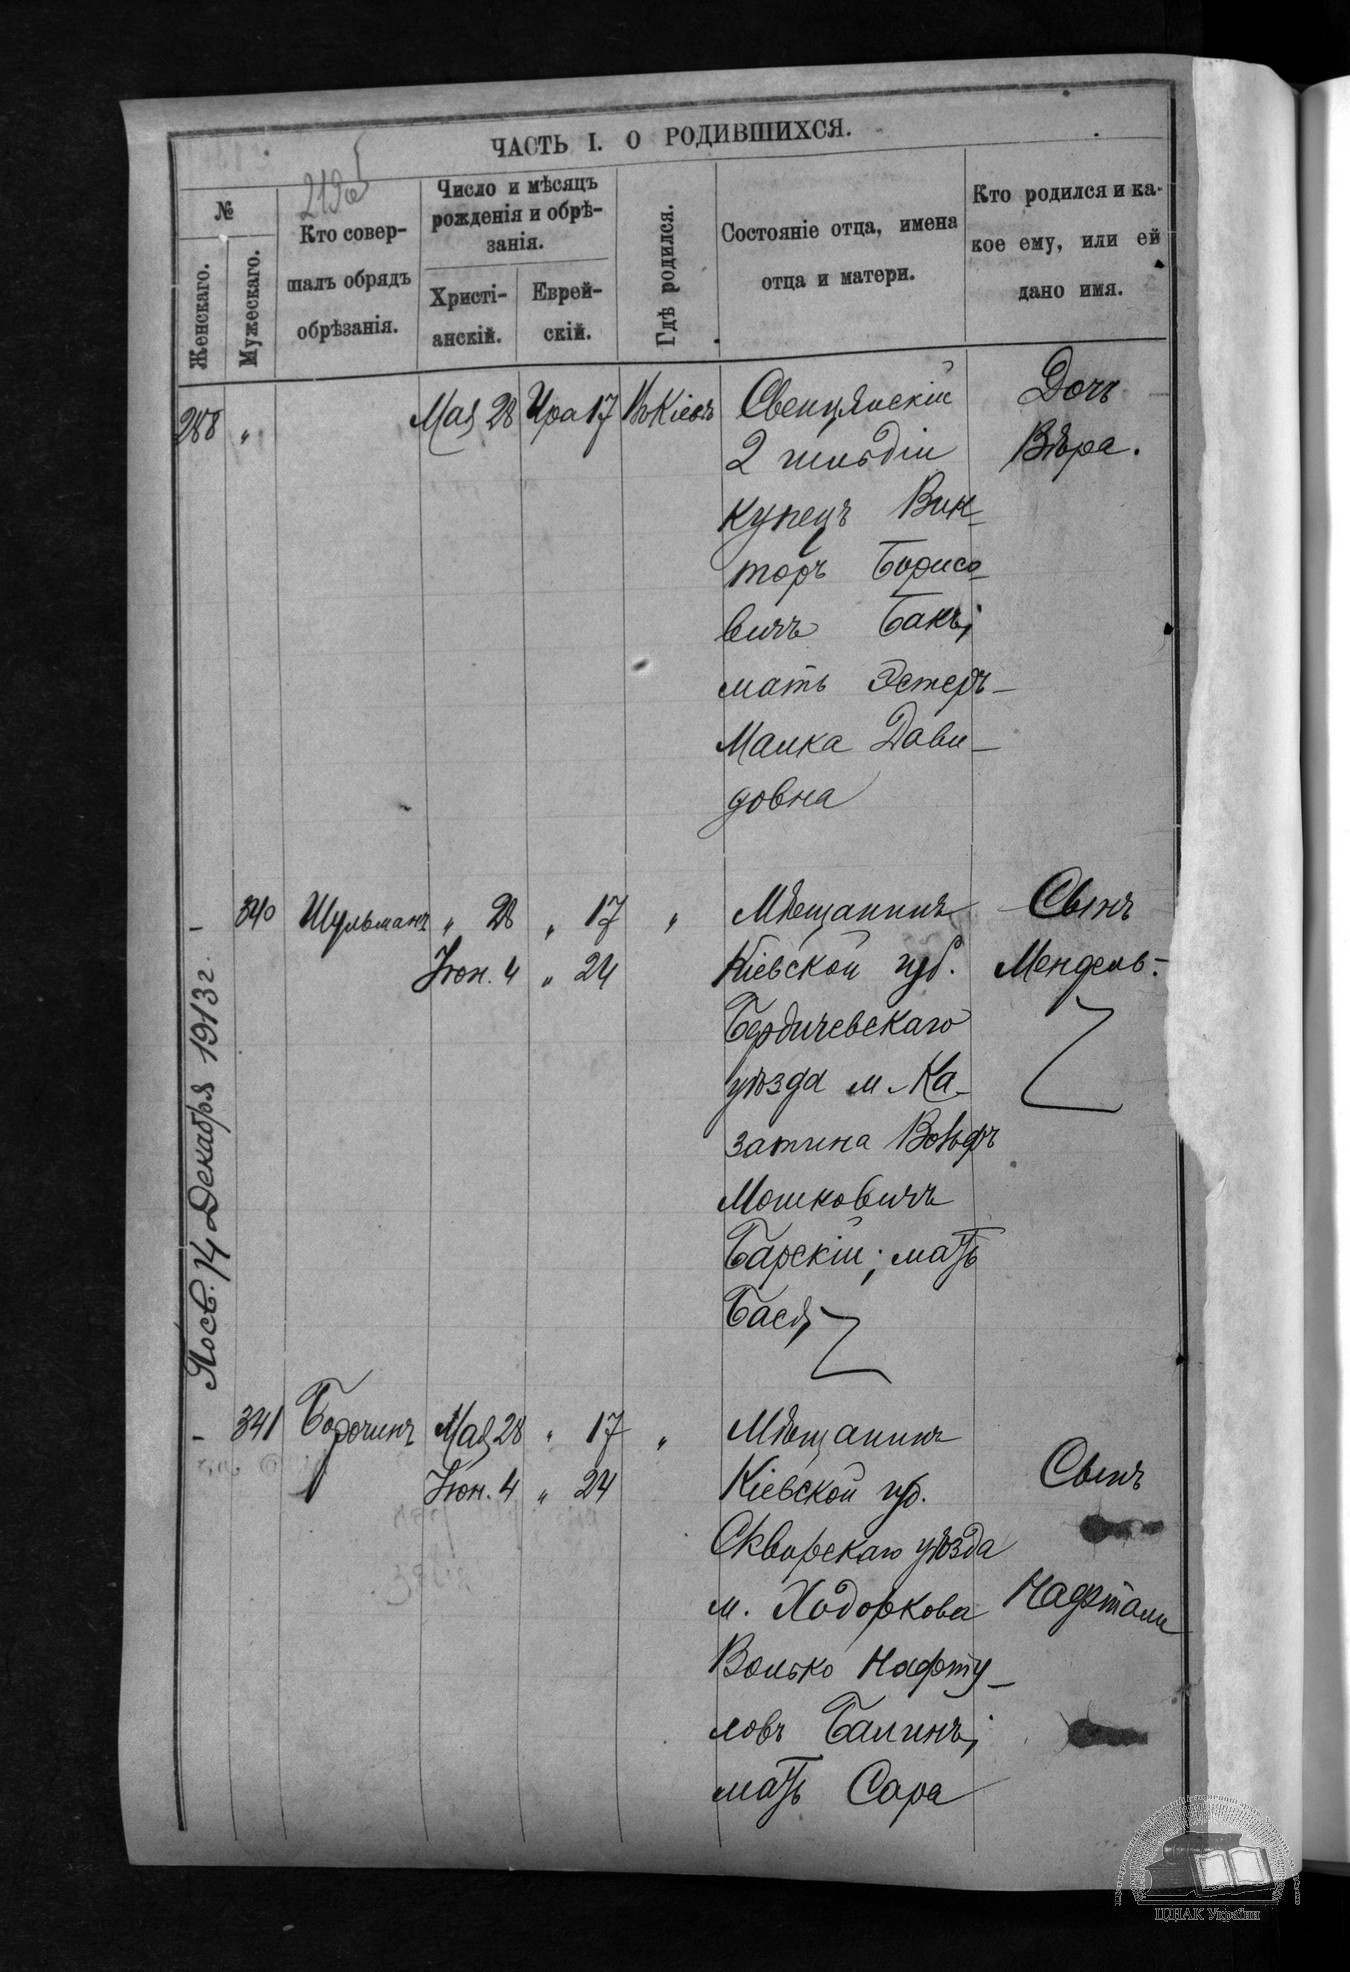 ЧАСТЬ I. О РОДИВШИХСЯ.
№
Женскаго.
Мужескаго.
219об
Кто совер-
шалъ обрядъ
обрѣзанія.
Число и мѣсяцъ
рожденія и обрѣ-
занія.
Христі-
анскій.
Еврей-
скій.
Гдѣ родился.
Состояніе отца, имена
отца и матери.
Кто родился и ка-
кое ему, или ей
дано имя.
288 " Мая 28 Ира 17 Въ Кіевѣ
Свенцянскій
2 гильдіи
купецъ Вик-
торъ Борисо-
вичъ Бакъ;
мать Эстеръ-
Малка Дави-
довна
Дочь
Вѣра.
- 340 Шульманъ " 28 " 17 "
Іюн. 4 " 24
Мѣщанинъ
Кіевской губ.
Бердичевскаго
уѣзда м. Ка-
затина Вольфъ
Мошковичъ
Барскій; мать
Бася
Сынъ
Мендель.
Посв. 14 Декабря 1913 г.
- 341 Бородчинъ Мая 28 " 17 "
Іюн. 4 " 24
Мѣщанинъ
Кіевской губ.
Сквирскаго уѣзда
м. Ходоркова
Волько Нафту-
ловъ Балинъ;
мать Сара
Сынъ
Нафтали
ЦДІАК України